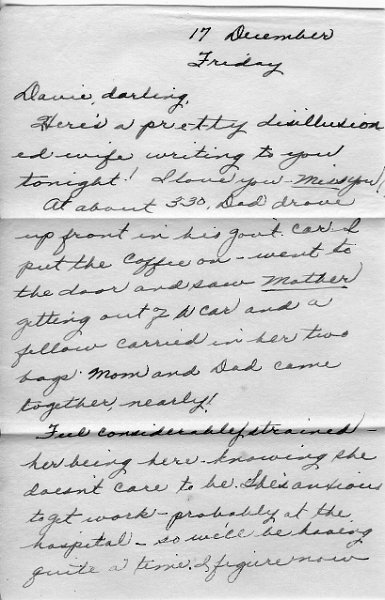 17 December
Friday
Davie, darling,
Here's a pretty disillusion
ed wife writing to you
tonight! I love you - Miss you!
At about 3:30, Dad drove
up front in his gov't car. I
put the coffee on - went to
the door and saw Mother
getting out of car and a
fellow carried in her two
bags. Mom and Dad came
together, nearly!
Feel considerably strained -
her being here - knowing she
doesn't care to be. She's anxious
to get work - probably at the
hospital - so we'll be having
quite a time. I figure now